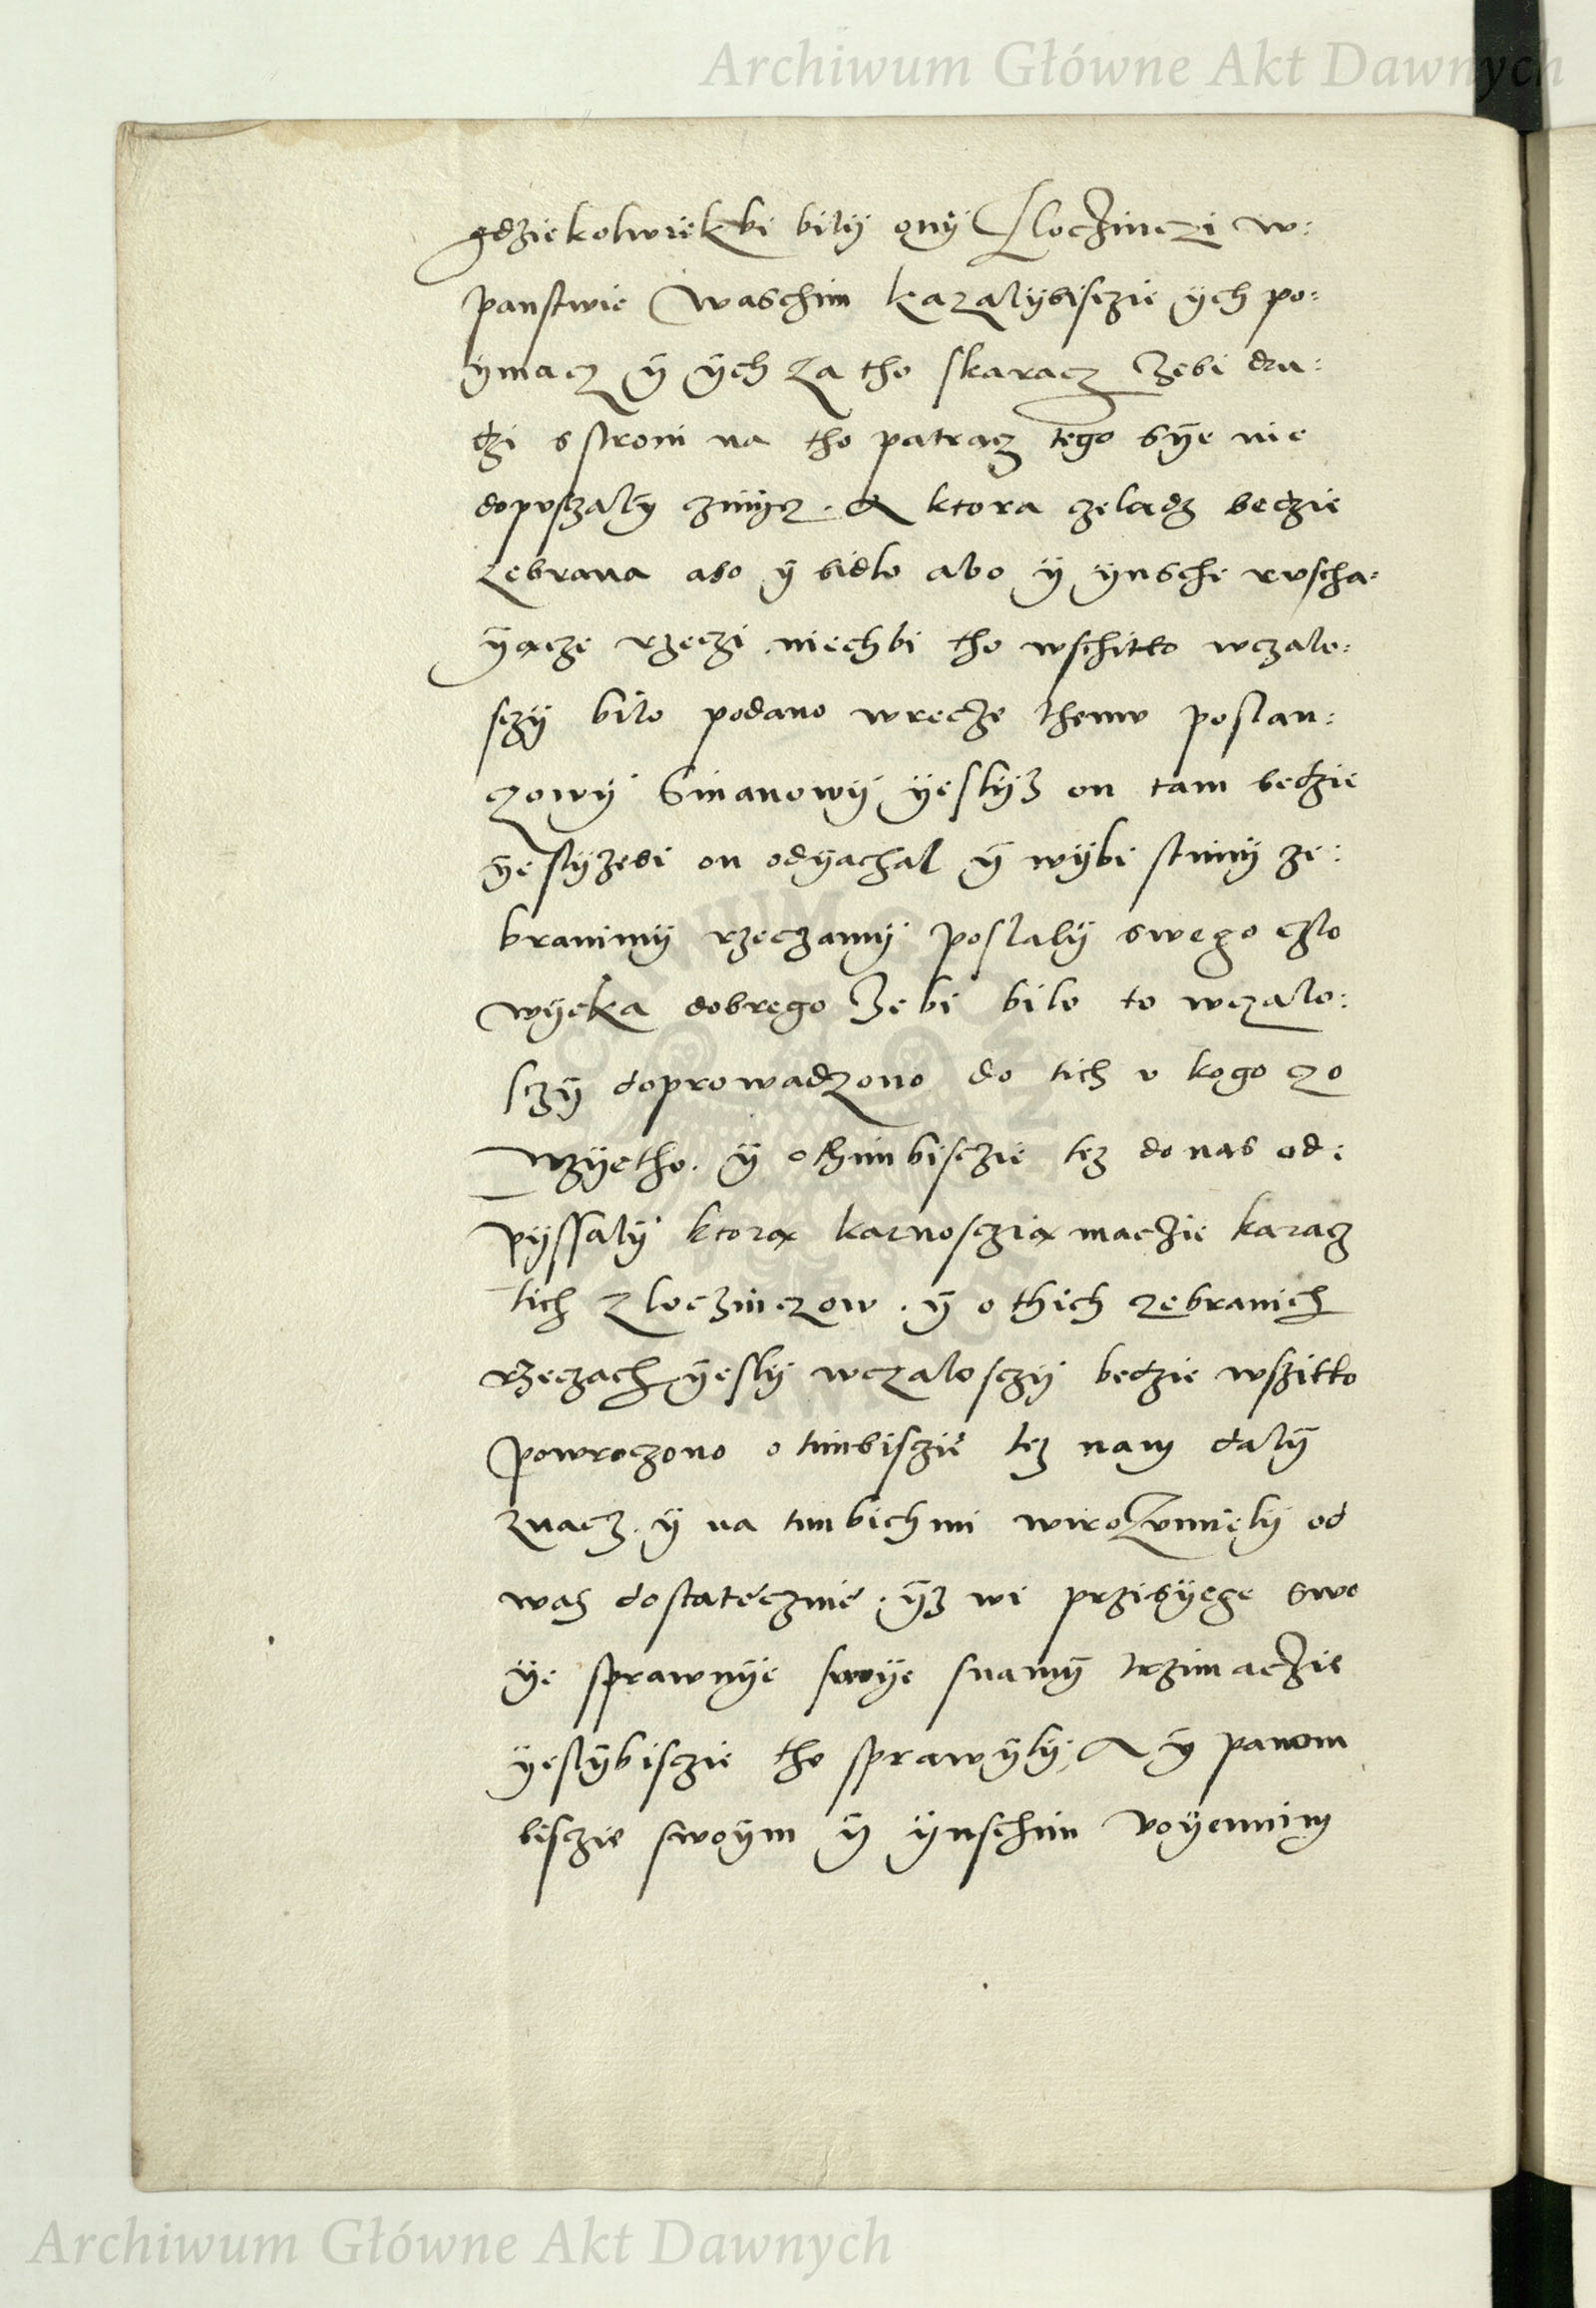 Archiwum Główne Akt Dawnych
gdziekolwiekbi bilÿ onÿ Zloczinczi w:
panstwie Waschim kazalÿbisczie ÿch po:
ÿmacz ÿ ÿch za tho skaracz Zebi dru:
dzi s stroni na tho patracz tego sÿe nie
dopusczalÿ zinÿcz. A ktora czeladz bedzie
zebrana abo ÿ bidlo albo ÿ ÿnsche ruscha:
ÿacze rzeczi niechbi tho wschitko wczalo:
sczÿ bilo podano wrecze themu poslan:
czowÿ Sinanowÿ ÿeslÿz on tam bedzie
ÿeslÿzebi on odÿachal ÿ wÿbi stimÿ ze:
branimÿ rzeczamÿ poslalÿ swego czlo
wÿeka dobrego Zebi bilo to wczalo:
sczÿ doprowadzono do tich u kogo zo
wzÿetho. ÿ othimbisczie tez do nas od:
pÿssalÿ ktora karnosczia maczie karacz
tich zloczinczow. ÿ o thich zebranich
rzeczach ÿeslÿ wczalosczÿ bedzie wszitko
powroczono o timbisczie tez nam dalÿ
znacz. ÿ na timbichmi wirozumielÿ od
was dostatecznie. ÿz wi przisÿege swo
ÿe sprawnÿe swoÿe snamÿ trzimaczie
ÿeslÿbisczie tho sprawÿlÿ. A ÿ panom
bisczie swoÿm ÿ ÿnschim voÿennim
Archiwum Główne Akt Dawnych